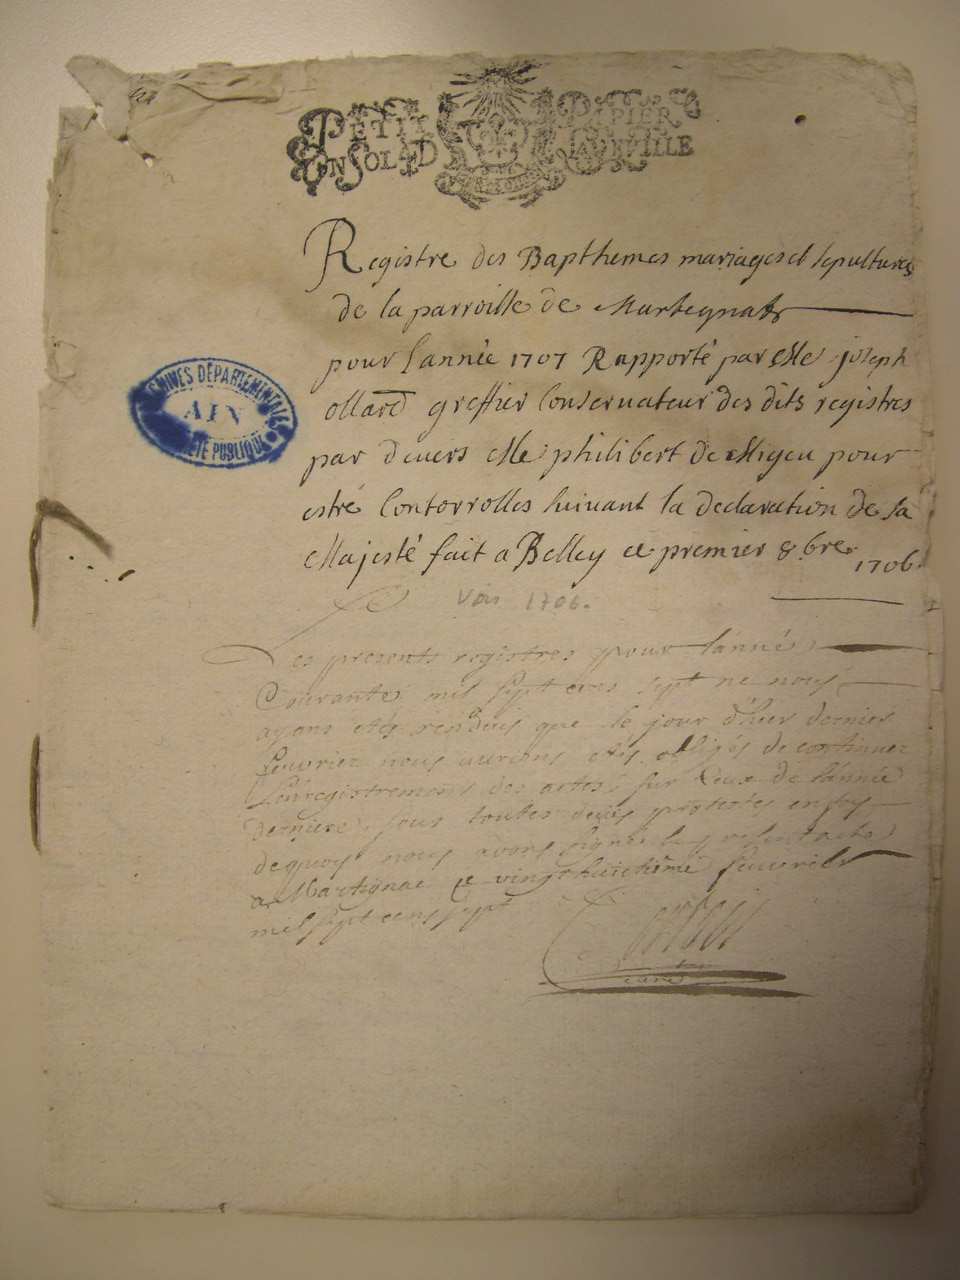 PETIT PAPIER
UN SOL LA FEUILLE
Registre des Bapthemes mariages et sepultures
de la parroisse de Martegnat
pour l'année 1707 Rapporté par Me joseph
ollard greffier Conservateur des dits registres
par devers Me philibert de Migeu pour
estre Contorrolles suivant la declaration de sa
Majesté fait a Belley ce premier 8.bre 1706.
ARCHIVES DÉPARTEMENTALES
AIN
PROPRIÉTÉ PUBLIQUE
Vois 1706.
Les presents registres pour l'année
Courante mil sept cens sept ne nous
ayans etes rendus que le jour d'hier dernier
feuvrier nous aurions etés obligés de continuer
l'enregistrement des actes sur ceux de l'année
derniere sous toutes deües protestes en foy
dequoy nous avons signé
a Martignac ce vingt huictieme feuvrier
mil sept cens sept
curé